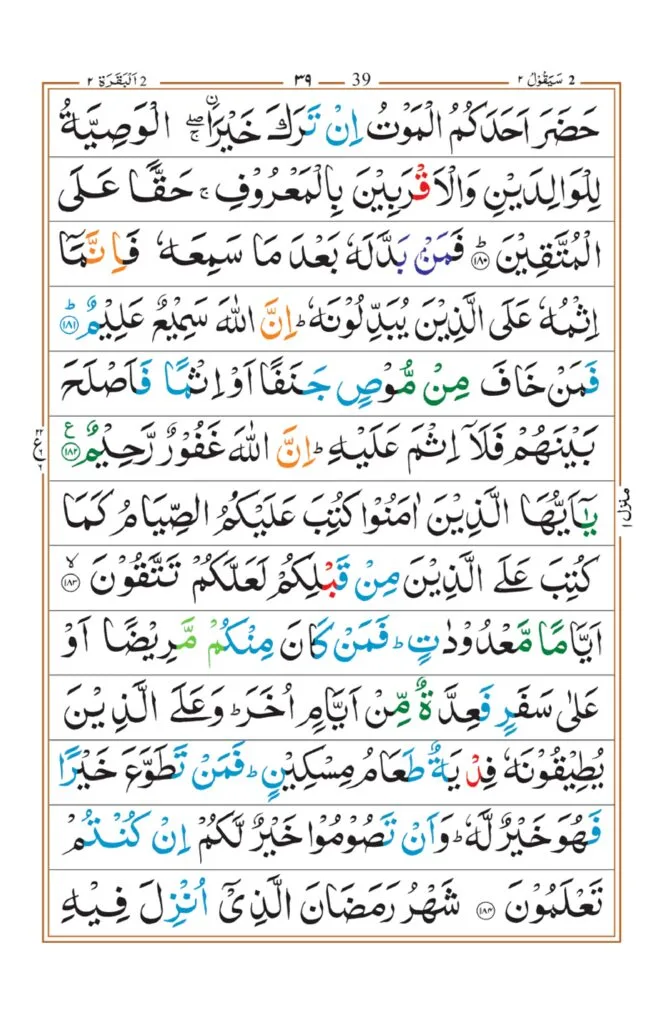 2 سَيَقُوۡلُ ٢ 39 ٣٩ 2 اَلۡبَقَرَة ٢
حَضَرَ اَحَدَكُمُ الۡمَوۡتُ اِنۡ تَرَكَ خَيۡرَا ۖۚ اۨلۡوَصِيَّةُ
لِلۡوَالِدَيۡنِ وَالۡاَقۡرَبِيۡنَ بِالۡمَعۡرُوۡفِ​ۚ حَقًّا عَلَى
الۡمُتَّقِيۡنَؕ‏ ﴿۱۸۰﴾ فَمَنۡۢ بَدَّلَهٗ بَعۡدَ مَا سَمِعَهٗ فَاِنَّمَآ
اِثۡمُهٗ عَلَى الَّذِيۡنَ يُبَدِّلُوۡنَهٗؕ اِنَّ اللّٰهَ سَمِيۡعٌ عَلِيۡمٌؕ‏ ﴿۱۸۱﴾
فَمَنۡ خَافَ مِنۡ مُّوۡصٍ جَنَفًا اَوۡ اِثۡمًا فَاَصۡلَحَ
بَيۡنَهُمۡ فَلَاۤ اِثۡمَ عَلَيۡهِؕ اِنَّ اللّٰهَ غَفُوۡرٌ رَّحِيۡمٌ ﴿۱۸۲﴾ ع
يٰٓـاَيُّهَا الَّذِيۡنَ اٰمَنُوۡا كُتِبَ عَلَيۡکُمُ الصِّيَامُ كَمَا
كُتِبَ عَلَى الَّذِيۡنَ مِنۡ قَبۡلِکُمۡ لَعَلَّكُمۡ تَتَّقُوۡنَۙ‏ ﴿۱۸۳﴾
اَيَّامًا مَّعۡدُوۡدٰتٍؕ فَمَنۡ كَانَ مِنۡكُمۡ مَّرِيۡضًا اَوۡ
عَلٰى سَفَرٍ فَعِدَّةٌ مِّنۡ اَيَّامٍ اُخَرَؕ وَعَلَى الَّذِيۡنَ
يُطِيۡقُوۡنَهٗ فِدۡيَةٌ طَعَامُ مِسۡكِيۡنٍؕ فَمَنۡ تَطَوَّعَ خَيۡرًا
فَهُوَ خَيۡرٌ لَّهٗؕ وَاَنۡ تَصُوۡمُوۡا خَيۡرٌ لَّـکُمۡ اِنۡ كُنۡتُمۡ
تَعۡلَمُوۡنَ‏ ﴿۱۸۴﴾ شَهۡرُ رَمَضَانَ الَّذِىۡٓ اُنۡزِلَ فِيۡهِ
منزل ١